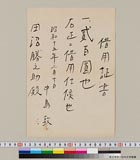 借用証書
一貳百圓也
右正ニ借用仕候也
昭和十五年八月十日
田沼勝之助殿